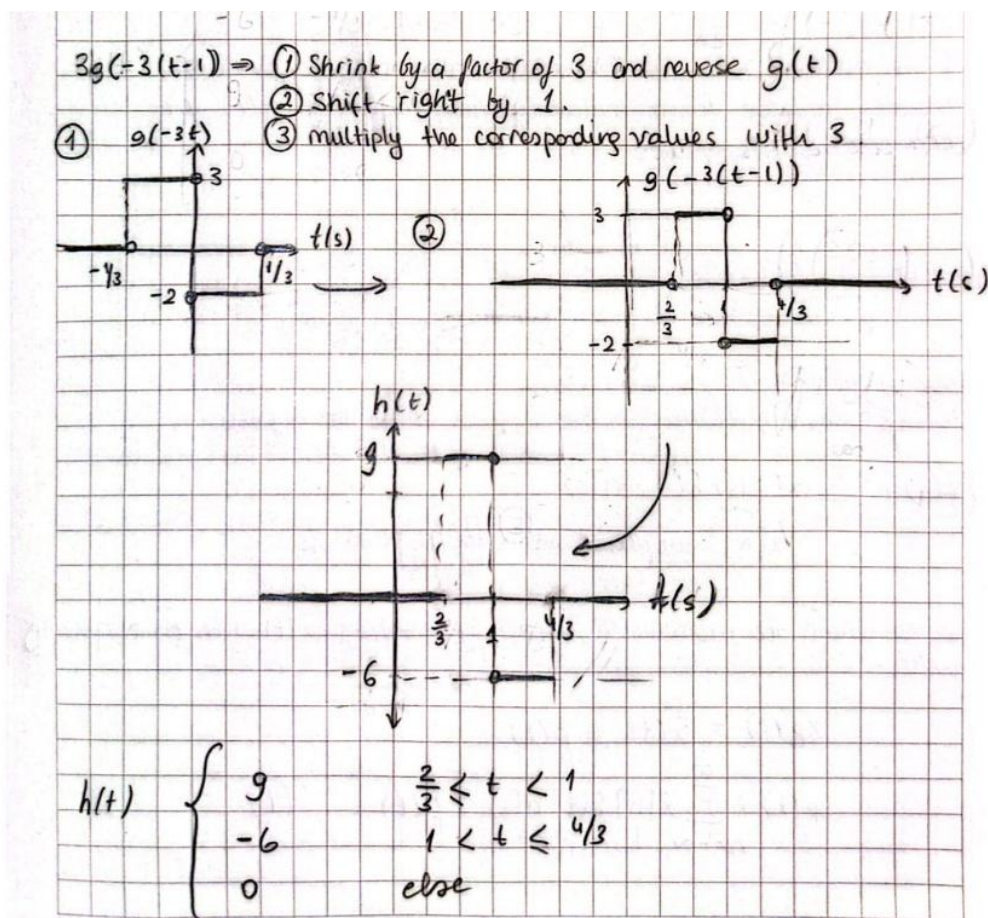 3g(-3(t-1)) ⇒ ① Shrink by a factor of 3 and reverse g(t)
② Shift right by 1.
③ multiply the corresponding values with 3
① g(-3t)
3
t(s)
-1/3
1/3
-2
②
g(-3(t-1))
3
t(s)
2/3
1
4/3
-2
h(t)
9
t(s)
2/3
1
4/3
-6
h(t) {
9 2/3 ≤ t < 1
-6 1 < t ≤ 4/3
0 else